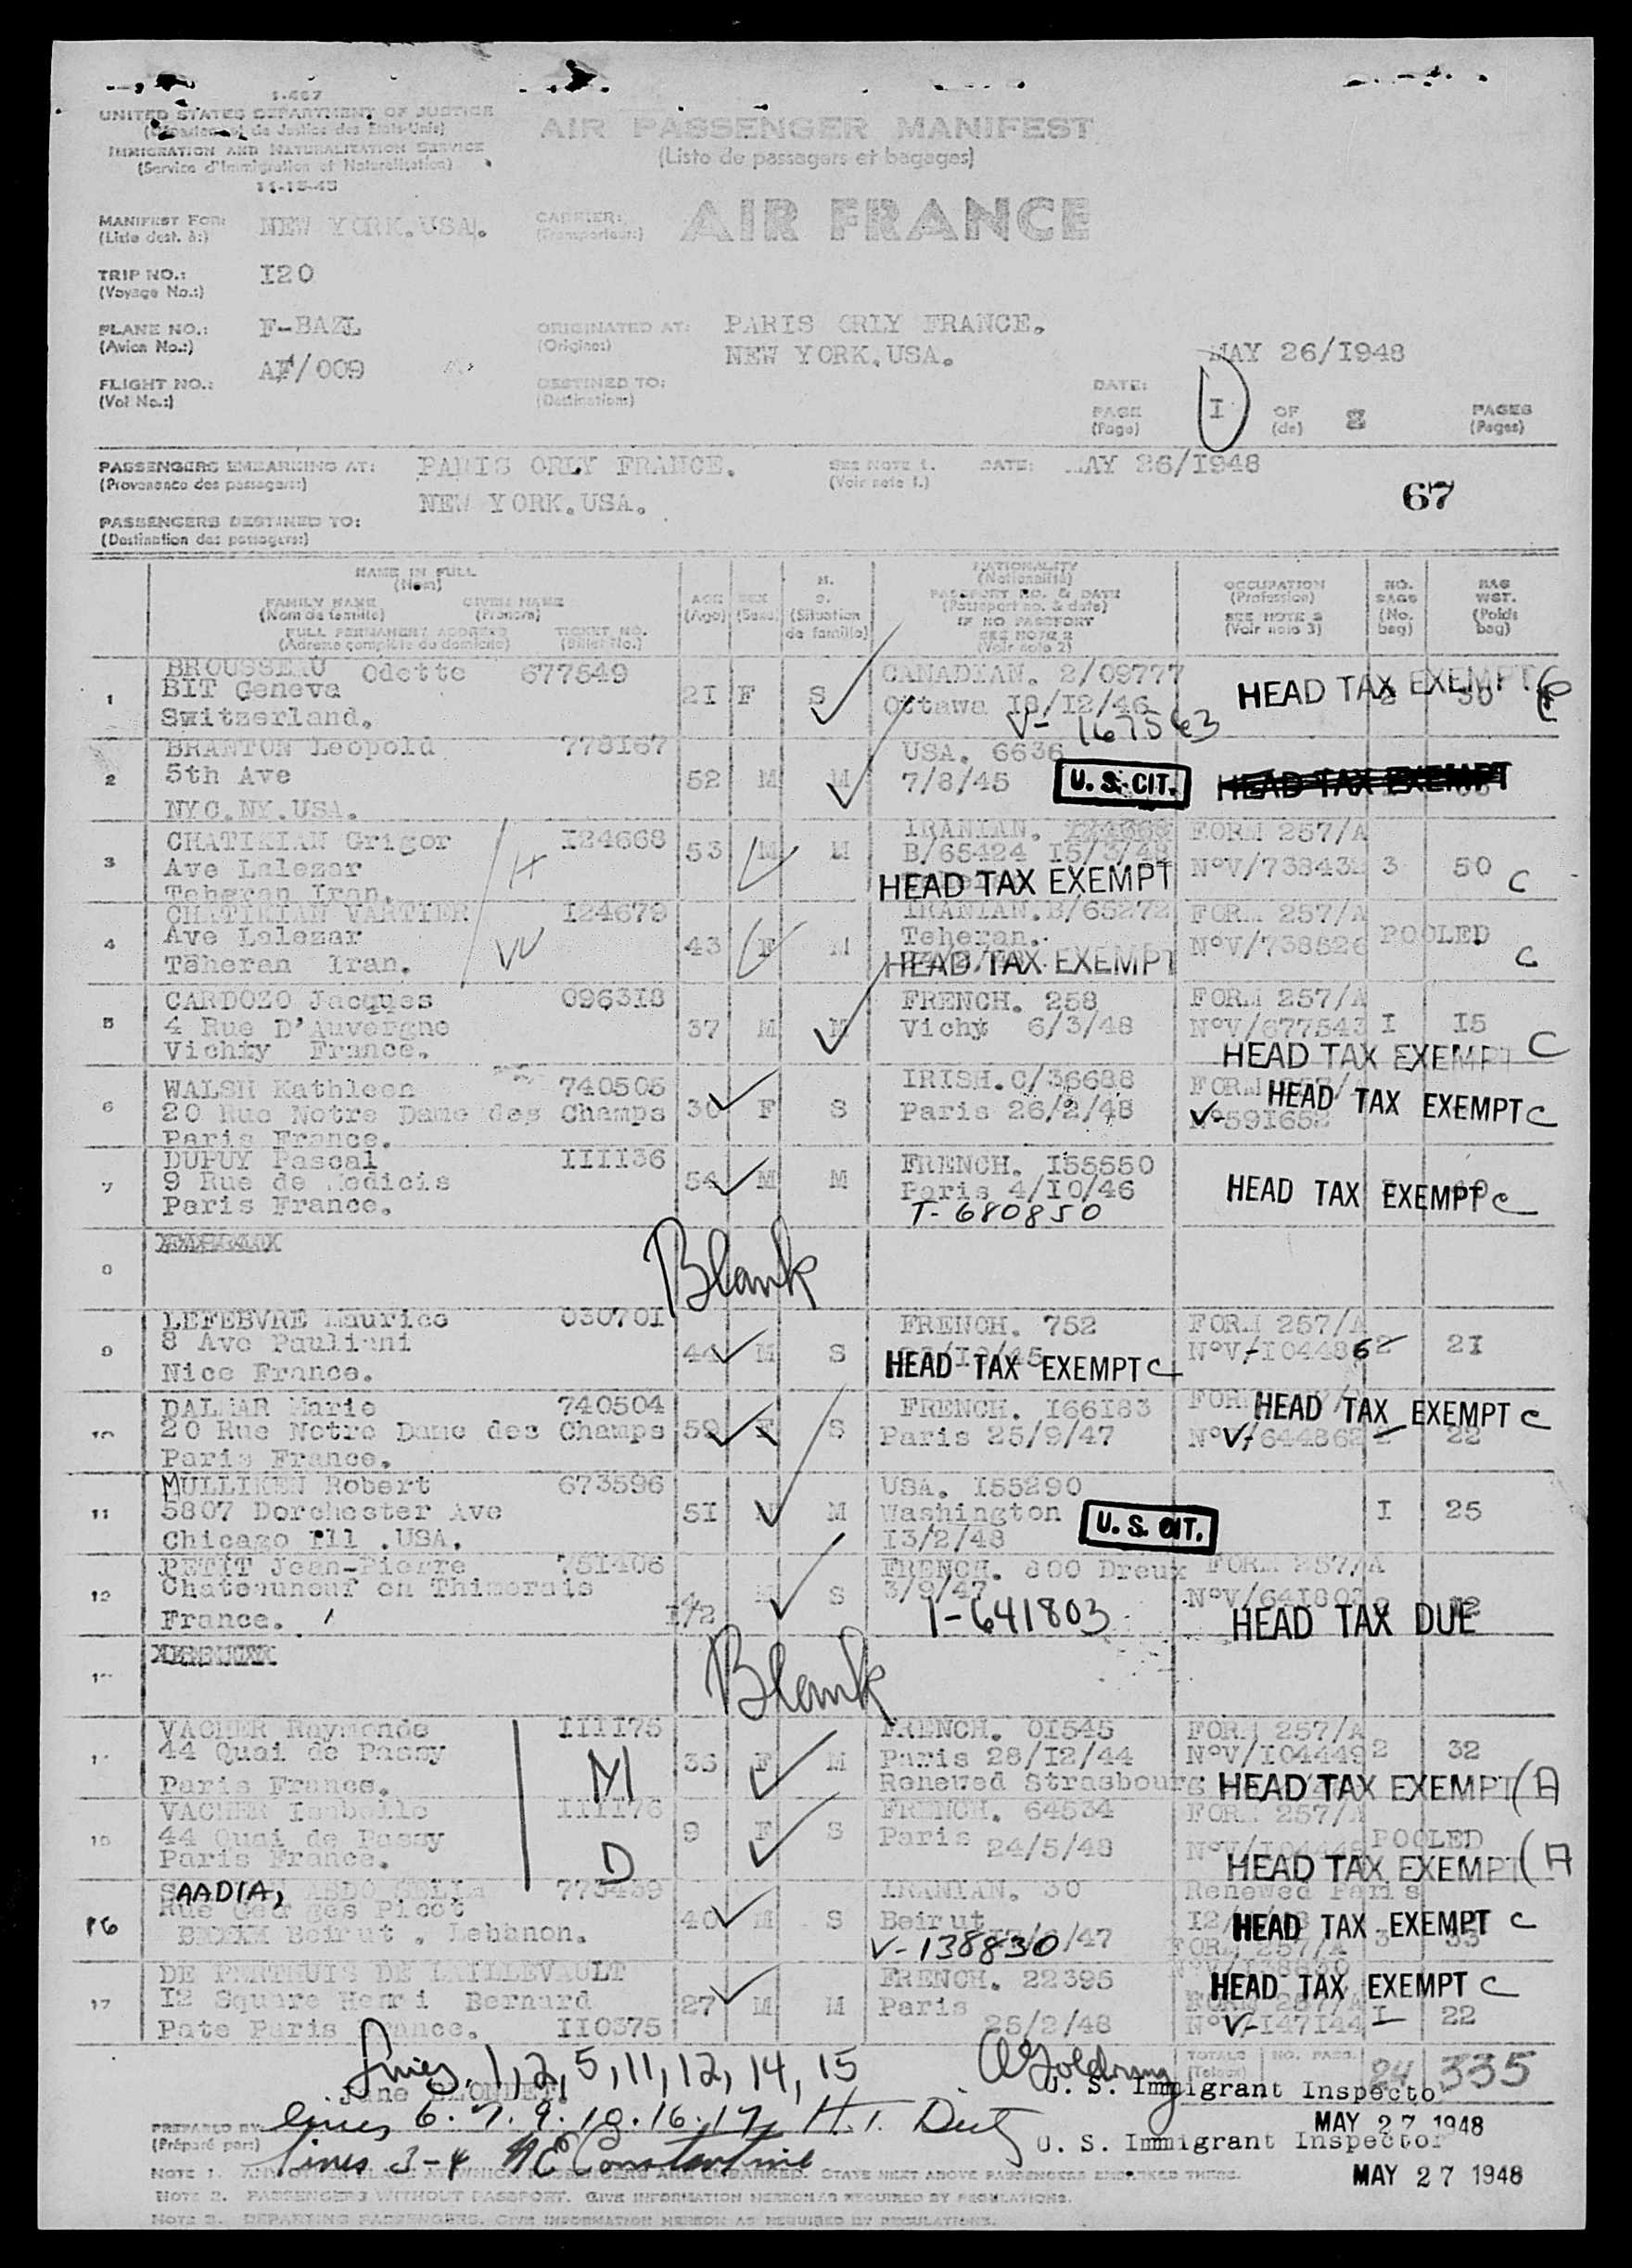 1-467
UNITED STATES DEPARTMENT OF JUSTICE
(Département de Justice des Etats-Unis)
IMMIGRATION AND NATURALIZATION SERVICE
(Service d'Immigration et Naturalisation)
11-15-45
AIR PASSENGER MANIFEST
(Liste de passagers et bagages)
MANIFEST FOR: NEW YORK.USA.
(Liste dest. à:)
CARRIER: AIR FRANCE
(Transporteur:)
TRIP NO.: I20
(Voyage No.:)
PLANE NO.: F-BAZL
(Avion No.:)
ORIGINATED AT: PARIS ORLY FRANCE.
(Origine:)
FLIGHT NO.: AF/009
(Vol No.:)
DESTINED TO: NEW YORK.USA.
(Destination:)
DATE: MAY 26/I948
PAGE I OF 2 PAGES
(Page) (de) (Pages)
PASSENGERS EMBARKING AT: PARIS ORLY FRANCE.
(Provenance des passagers:)
SEE NOTE 1. DATE: MAY 26/I948
(Voir note 1.)
67
PASSENGERS DESTINED TO: NEW YORK.USA.
(Destination des passagers:)
NAME IN FULL
(Nom)
FAMILY NAME GIVEN NAME
(Nom de famille) (Prenom)
FULL PERMANENT ADDRESS TICKET NO.
(Adresse complète du domicile) (Billet No.)
AGE
(Age)
SEX
(Sexe)
M.
S.
(Situation
de famille)
NATIONALITY
(Nationalité)
PASSPORT NO. & DATE
(Passeport no. & date)
IF NO PASSPORT
SEE NOTE 2
(Voir note 2)
OCCUPATION
(Profession)
SEE NOTE 3
(Voir note 3)
NO.
BAGS
(No.
bag)
BAG
WGT.
(Poids
bag)
1 BROUSSEAU Odette 677549 2I F S CANADIAN. 2/09777
BIT Geneva Ottawa I8/I2/46 HEAD TAX EXEMPT
Switzerland. V- 167563
2 BRANTON Leopold 778I67 52 M M USA. 6636
5th Ave 7/8/45 U. S. CIT. HEAD TAX EXEMPT
NYC.NY.USA.
3 CHATIKIAN Grigor I24668 53 M M IRANIAN. FORM 257/A
Ave Lalezar H B/65424 I5/3/48 3 50 C
Teheran Iran. HEAD TAX EXEMPT
4 CHATIKIAN VARTIER I24679 43 F M IRANIAN.B/65272 FORM 257/A
Ave Lalezar W Teheran. NºV/738526 POOLED C
Teheran Iran. HEAD TAX EXEMPT
5 CARDOZO Jacques 0963I8 37 M M FRENCH. 258 FORM 257/A
4 Rue D'Auvergne Vichy 6/3/48 NºV/677543 I I5
Vichy France. HEAD TAX EXEMPT C
6 WALSH Kathleen 740505 30 F S IRISH.C/36688 FORM
20 Rue Notre Dame des Champs Paris 26/2/48 HEAD TAX EXEMPT C
Paris France.
7 DUPUY Pascal IIII36 54 M M FRENCH. I55550
9 Rue de Medicis Paris 4/I0/46 HEAD TAX EXEMPT C
Paris France. T- 680850
8 Blank
9 LEFEBVRE Maurice 03070I 44 M S FRENCH. 752 FORM 257/A
8 Ave Pauliani NºV-I044862 2I
Nice France. HEAD TAX EXEMPT C
10 DALMAR Marie 740504 59 F S FRENCH. I66I83 HEAD TAX EXEMPT C
20 Rue Notre Dame des Champs Paris 25/9/47 NºV/644862 22
Paris France.
11 MULLIKEN Robert 673596 5I M USA. I55290
5807 Dorchester Ave Washington I 25
Chicago Ill .USA. I3/2/48 U. S. CIT.
12 PETIT Jean-Pierre 75I406 4 I/2 S FRENCH. 800 Dreux FORM 257/A
Chateauneuf en Thimerais 3/9/47 NºV/64I803
France. 1-641803 HEAD TAX DUE
Blank
VACHER Raymonde IIII75 35 F M FRENCH. 0I545 FORM 257/A
44 Quai de Passy M Paris 28/I2/44 NºV/I04449 2 32
Paris France. Renewed Strasbourg HEAD TAX EXEMPT (A
15 VACHER Isabelle IIII76 9 F S FRENCH. 64534 FORM 257/A
44 Quai de Passy D Paris 24/5/48 POOLED
Paris France. HEAD TAX EXEMPT (A
16 SAADIA, 773439 40 M S IRANIAN. 30 Renewed Paris
Rue Georges Picot Beirut /6/47 HEAD TAX EXEMPT C
Beirut . Lebanon. V-138830 FORM 257/A
17 DE PERTHUIS DE LAILLEVAULT 27 M M FRENCH. 22395 HEAD TAX EXEMPT C
I2 Square Henri Bernard Paris FORM 257/A
Pate Paris France. II0375 25/2/48 NºV-I47I44 I 22
lines 1, 2, 5, 11, 12, 14, 15 A Goldring
TOTALS NO. PASS. 24 335
(Totaux)
U. S. Immigrant Inspecto
PREPARED BY: Jane BLONDET
(Préparé par:)
lines 6. 7. 9. 10. 16. 17
MAY 27 1948
U. S. Immigrant Inspector
lines 3-4 Constantine
MAY 27 1948
NOTE 2. PASSENGERS WITHOUT PASSPORT. GIVE INFORMATION HEREON AS REQUIRED BY REGULATIONS.
NOTE 3. DEPARTING PASSENGERS. GIVE INFORMATION HEREON AS REQUIRED BY REGULATIONS.